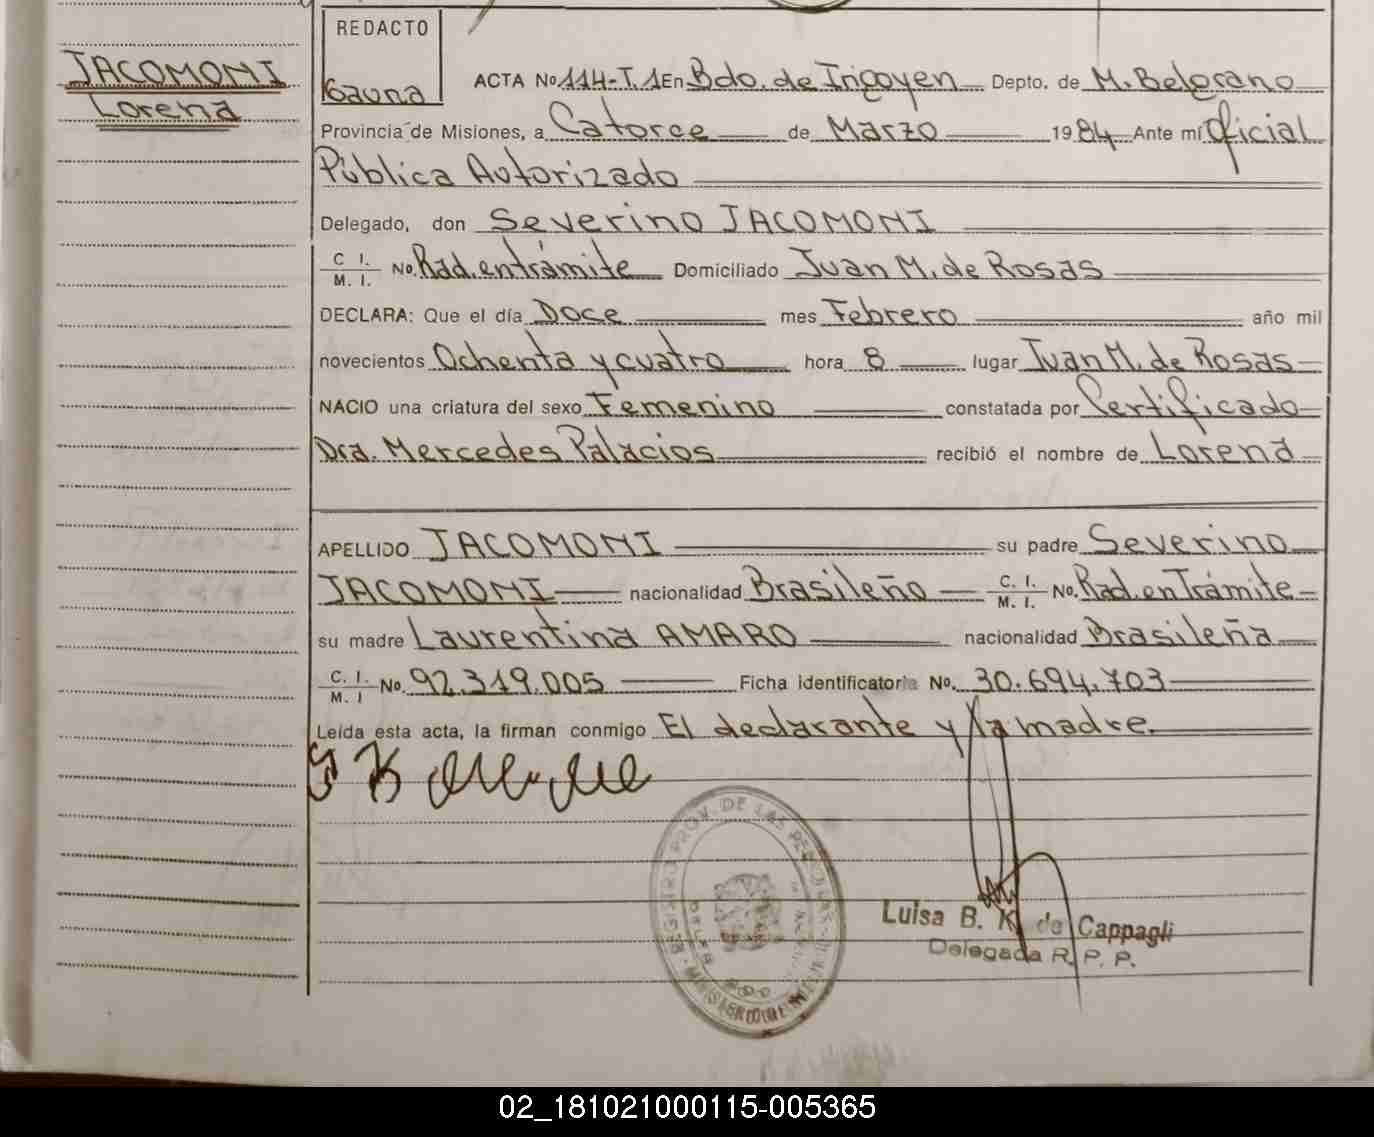 JACOMONI
Lorena
REDACTO
Gauna
ACTA No 114-T.1 En Bdo. de Irigoyen Depto. de M. Belgrano
Provincia de Misiones, a Catorce de Marzo 1984 Ante mí Oficial
Pública Autorizado
Delegado, don Severino JACOMONI
C I. M. I. No. Rad. en trámite Domiciliado Juan M. de Rosas
DECLARA: Que el día Doce mes Febrero año mil
novecientos Ochenta y cuatro hora 8 lugar Juan M. de Rosas
NACIO una criatura del sexo Femenino constatada por Certificado
Dra. Mercedes Palacios recibió el nombre de Lorena
APELLIDO JACOMONI su padre Severino
JACOMONI nacionalidad Brasileño C. I. M. I. No. Rad. en Trámite
su madre Laurentina AMARO nacionalidad Brasileña
C. I. M. I No. 92.319.005 Ficha identificatoria No. 30.694.703
Leída esta acta, la firman conmigo El declarante y la madre.
REGISTRO PROV. DE LAS PERSONAS
Luisa B. K. de Cappagli
Delegada R. P. P.
02_181021000115-005365